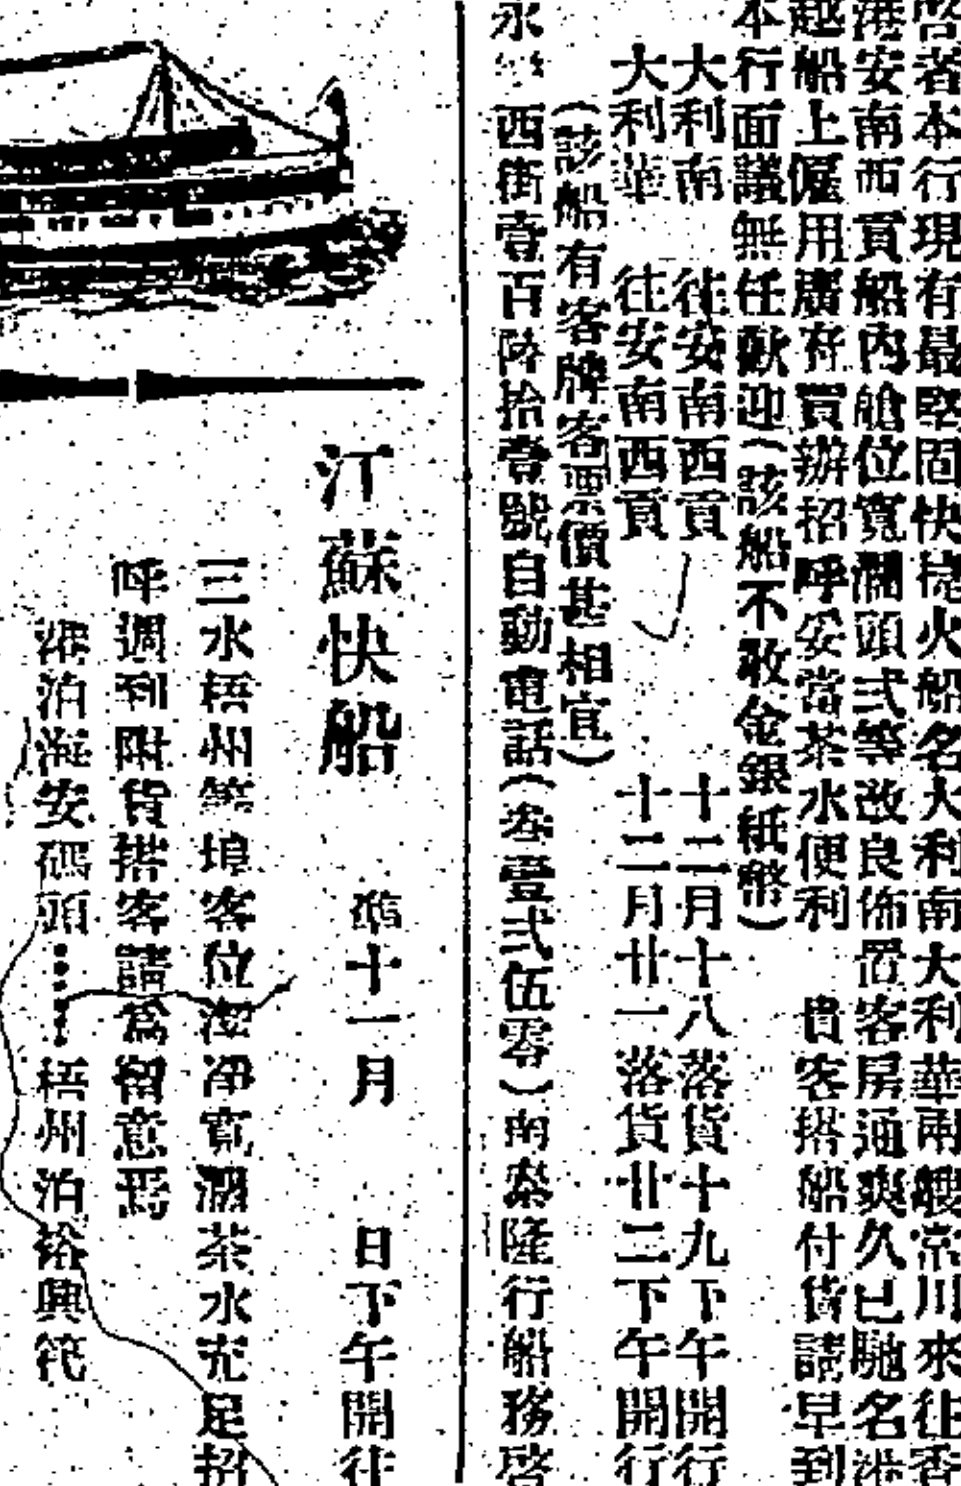 啓者本行現有最堅固快捷火船名大利南大利華兩艘常川來往香
港安南西貢船內艙位寬濶頭弍等改良佈置客房通爽久已馳名沿
越船上僱用廣府買辦招呼妥當茶水便利　貴客搭船付貨請早到
本行面議無任歡迎(該船不敢金銀紙幣)
大利南　往安南西貢　十二月十八落貨十九下午開行
大利華　往安南西貢　十二月廿一落貨廿二下午開行
(該船有客牌客票價甚相宜)
永　西街壹百陸拾壹號自動電話(叁壹弍伍零)南泰隆行船務啓
江蘇快船　準十一月　日下午開往
三水梧州等埠客位潔净寬濶茶水充足招
呼週到附貨搭客請爲留意焉
港泊海安碼頭……梧州泊裕興筏